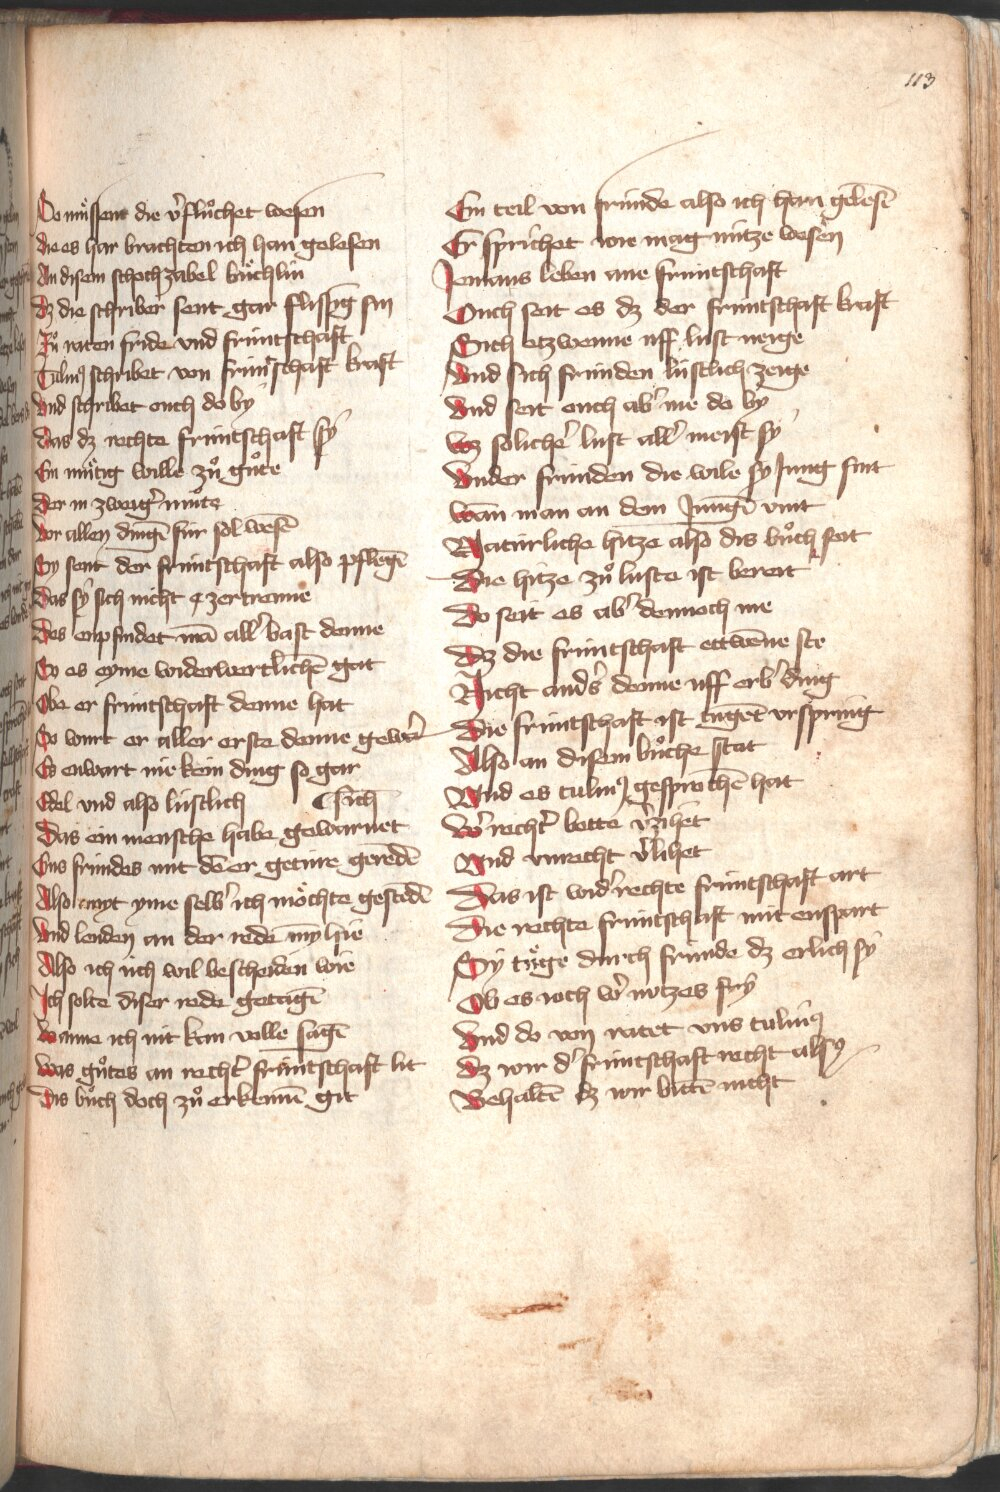 113
Do muͤssent die v̓fluͦchet wesen
die es har brachten ich han gelesen
An disem schochzabel buͤchlin
Dz die schriber sent gar flissig sin
Zuͦ raten fride vnd fruntschaft
Tulius schribet von fruntschaft kraft
Vnd schribet ouch do by
Das dz rechte fruntschaft sy
Ein muͤtig wille zuͦ guͦte
Der in zweiger muͦte
Vor allen dingē fur sol wesē
Sy sent der fruntschaft also pflegē
Das sy sich nicht zertrenne
Des enpfindet mā all̓ bast denne
So es eyme widerwertlichē gat
Obe er fruntschaft denne hat
So wurt er aller erste denne gewar̓
Es enwart nie kein ding so gar
Edel vnd also lustlich
sich
Das ein mensche habe gewarnet
Eins frundes mit dē er geture geredē
Also myt yme selb̓ ich moͤchte gestedē
Vnd lenden an der rede my hie
Also ich uch wil bescheiden wie
Ich solte diser rede getagē
Wanne ich nit kan volle sagē
Was guͦtes an recht̓ fruntschaft lit
Dis buͦch doch zuͦ erkennē git
Ein teil von frunde also ich han gelesē
Er sprichet wie mag nutze wesen
Iemans leben ane fruntschaft
Ouch seit es dz der fruntschaft kraft
Sich etzwenne uff lust neige
Vnd sich frunden lustlich zeige
Vnd seit ouch ab̓ me do by
Wz solicher̓ lust all̓ meist sy
Vnder frunden die wile sy Jung sint
Wan man an dem Jungē vint
Naturliche hitze also dis buͦch seit
Die hitze zuͦ luste ist bereit
Do seit es ab̓ dennoch me
Dz die fruntschaft ettwēne ste
Nicht and̓s denne uff erb̓ ding
Die fruntschaft ist tugēt vrspring
Also an disem buͦche stat
Vnd es tulius gesprochē hat
W̓ recht̓ bette v̓zihet
Vnd vnrecht v̓lihet
Das ist wid̓ rechte fruntschaft art
Die rechte fruntschaft nit enspart
Sy tuͤge durch frunde dz erlich sy
Ob es ioch w̓ nutzes fry
Vnd do von ratet vns tulius
Dz wir d̓ fruntschaft recht alsus
Behaltē dz wir bittē nicht